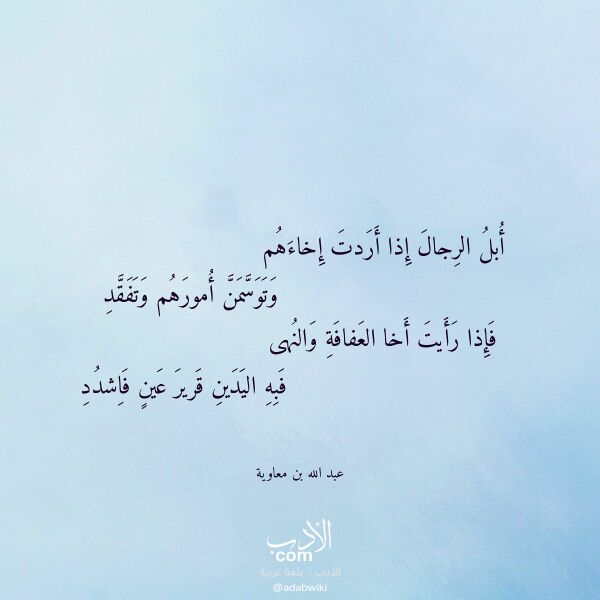 أُبلُ الرِجالَ إِذا أَرَدتَ إِخاءَهُم
وَتَوَسَّمَنَّ أُمورَهُم وَتَفَقَّدِ
فَإِذا رَأَيتَ أَخا العَفافَةِ وَالنُهى
فَبِهِ اليَدَينِ قَريرَ عَينٍ فَاِشدُدِ
عبد الله بن معاوية
الأدب
com
الأدب .. بلغة عربية
@adabwiki